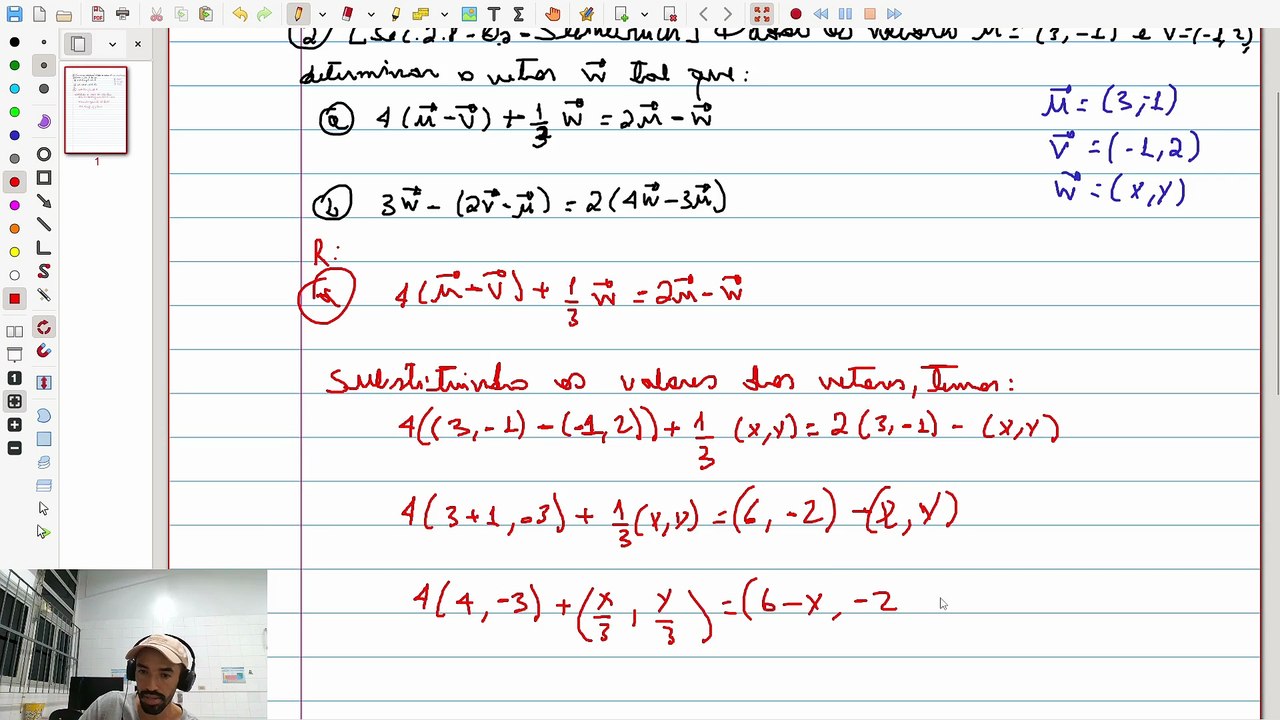 ② [Sec. 2.8 - Ex 2 - Steinbruch] Dados os vetores u⃗ = (3, -1) e v⃗ = (-1, 2),
determinar o vetor w⃗ tal que:
ⓐ 4(u⃗ - v⃗) + 1/3 w⃗ = 2u⃗ - w⃗
ⓑ 3w⃗ - (2v⃗ - u⃗) = 2(4w⃗ - 3u⃗)
u⃗ = (3, -1)
v⃗ = (-1, 2)
w⃗ = (x, y)
R:
4(u⃗ - v⃗) + 1/3 w⃗ = 2u⃗ - w⃗
Substituindo os valores dos vetores, temos:
4((3, -1) - (-1, 2)) + 1/3 (x, y) = 2(3, -1) - (x, y)
4(3+1, -3) + 1/3 (x, y) = (6, -2) - (x, y)
4(4, -3) + (x/3, y/3) = (6 - x, -2
1
T
1